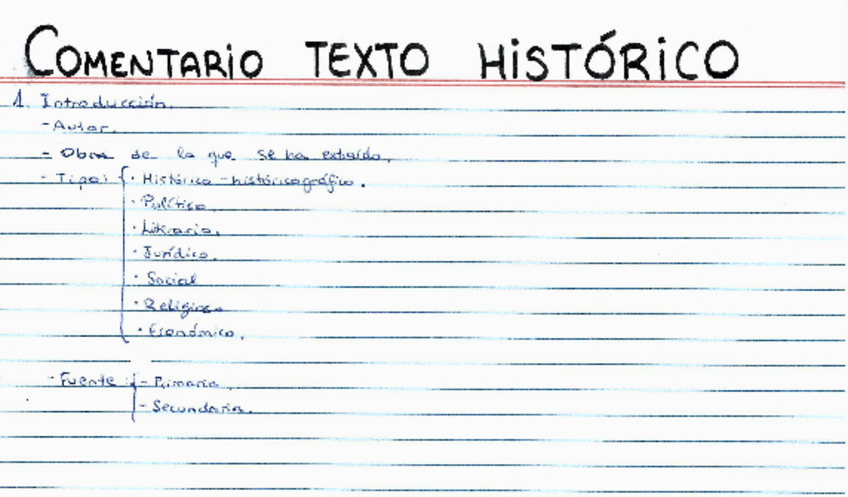 COMENTARIO TEXTO HISTÓRICO
1. Introducción.
- Autor.
- Obra de la que se ha extraído.
- Tipo: { · Histórico - históricográfico.
· Político.
· Literario.
· Jurídico.
· Social
· Religioso
· Económico.
- Fuente : { - Primaria.
- Secundaria.